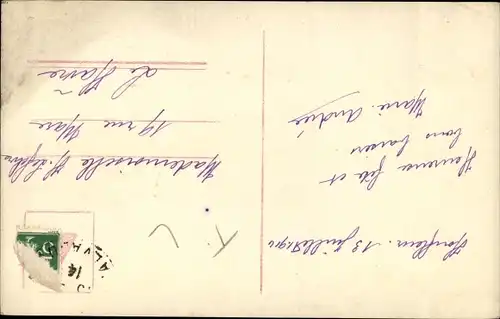 Honfleur 13 Juillet 1910
Heureuse fête et
bons baisers
Marie Andrée
Mademoiselle H. Lefebre
19 rue Mare
Le Havre
14
CALVA
5